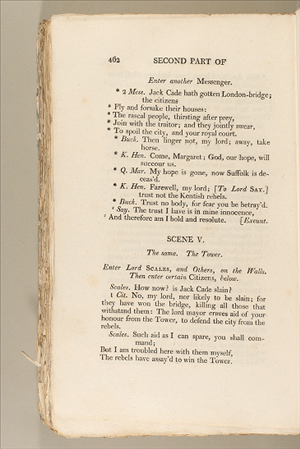 462 SECOND PART OF
Enter another Messenger.
* 2 Mess. Jack Cade hath gotten London-bridge;
the citizens
* Fly and forsake their houses:
* The rascal people, thirsting after prey,
* Join with the traitor; and they jointly swear,
* To spoil the city, and your royal court.
* Buck. Then linger not, my lord; away, take
horse.
* K. Hen. Come, Margaret; God, our hope, will
succour us.
* Q. Mar. My hope is gone, now Suffolk is de-
ceas'd.
* K. Hen. Farewell, my lord; [To Lord SAY.]
trust not the Kentish rebels.
* Buck. Trust no body, for fear you be betray'd.
‘ Say. The trust I have is in mine innocence,
‘ And therefore am I bold and resolute. [Exeunt.
SCENE V.
The same. The Tower.
Enter Lord SCALES, and Others, on the Walls.
Then enter certain Citizens, below.
Scales. How now? is Jack Cade slain?
1 Cit. No, my lord, nor likely to be slain; for
they have won the bridge, killing all those that
withstand them: The lord mayor craves aid of your
honour from the Tower, to defend the city from the
rebels.
Scales. Such aid as I can spare, you shall com-
mand;
But I am troubled here with them myself,
The rebels have assay'd to win the Tower.